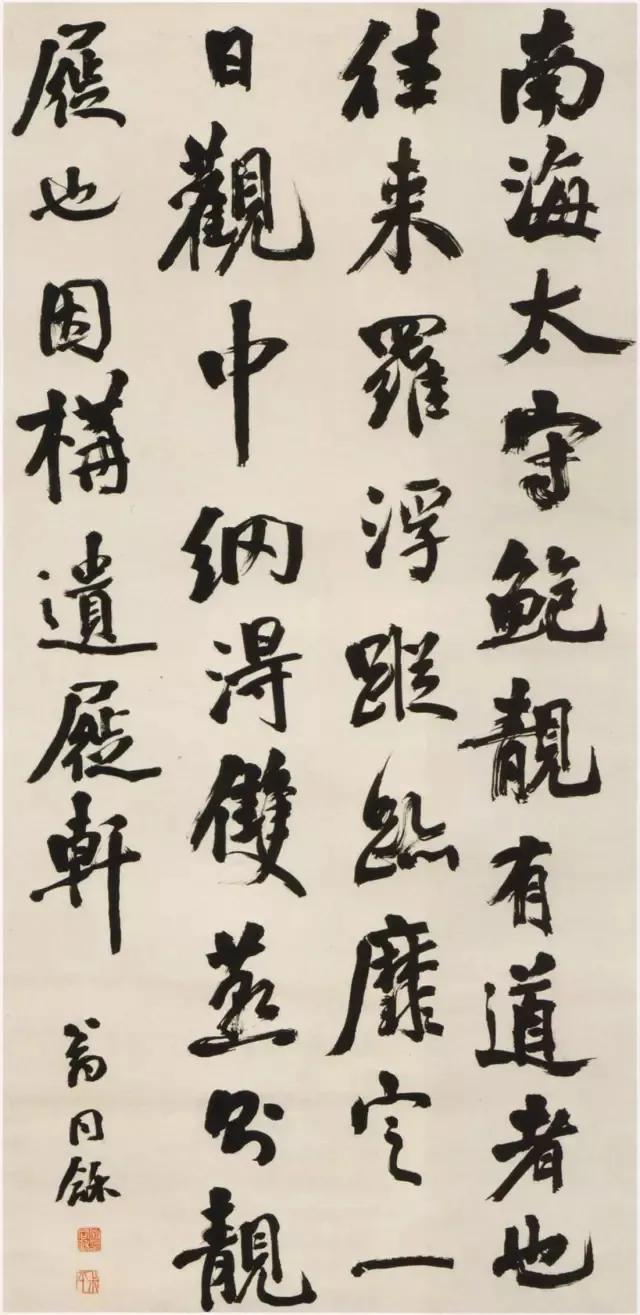 南海太守鮑靚有道者也
往來羅浮蹤跡靡定一
日觀中網得雙燕則靚
屣也因構遺屣軒
翁同龢